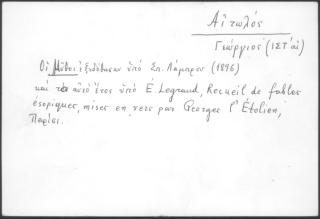 Αἰτωλός
Γεώργιος (ΙΣΤ΄ αἰ)
Οἱ Μῦθοι ἐξεδόθησαν ὑπό Σπ. Λάμπρου (1896)
καί τό αὐτό ἔτος ὑπό E. Legrand, Recueil de fables
ésopiques, mises en vers par Georges l'Étolien,
Παρίσι.